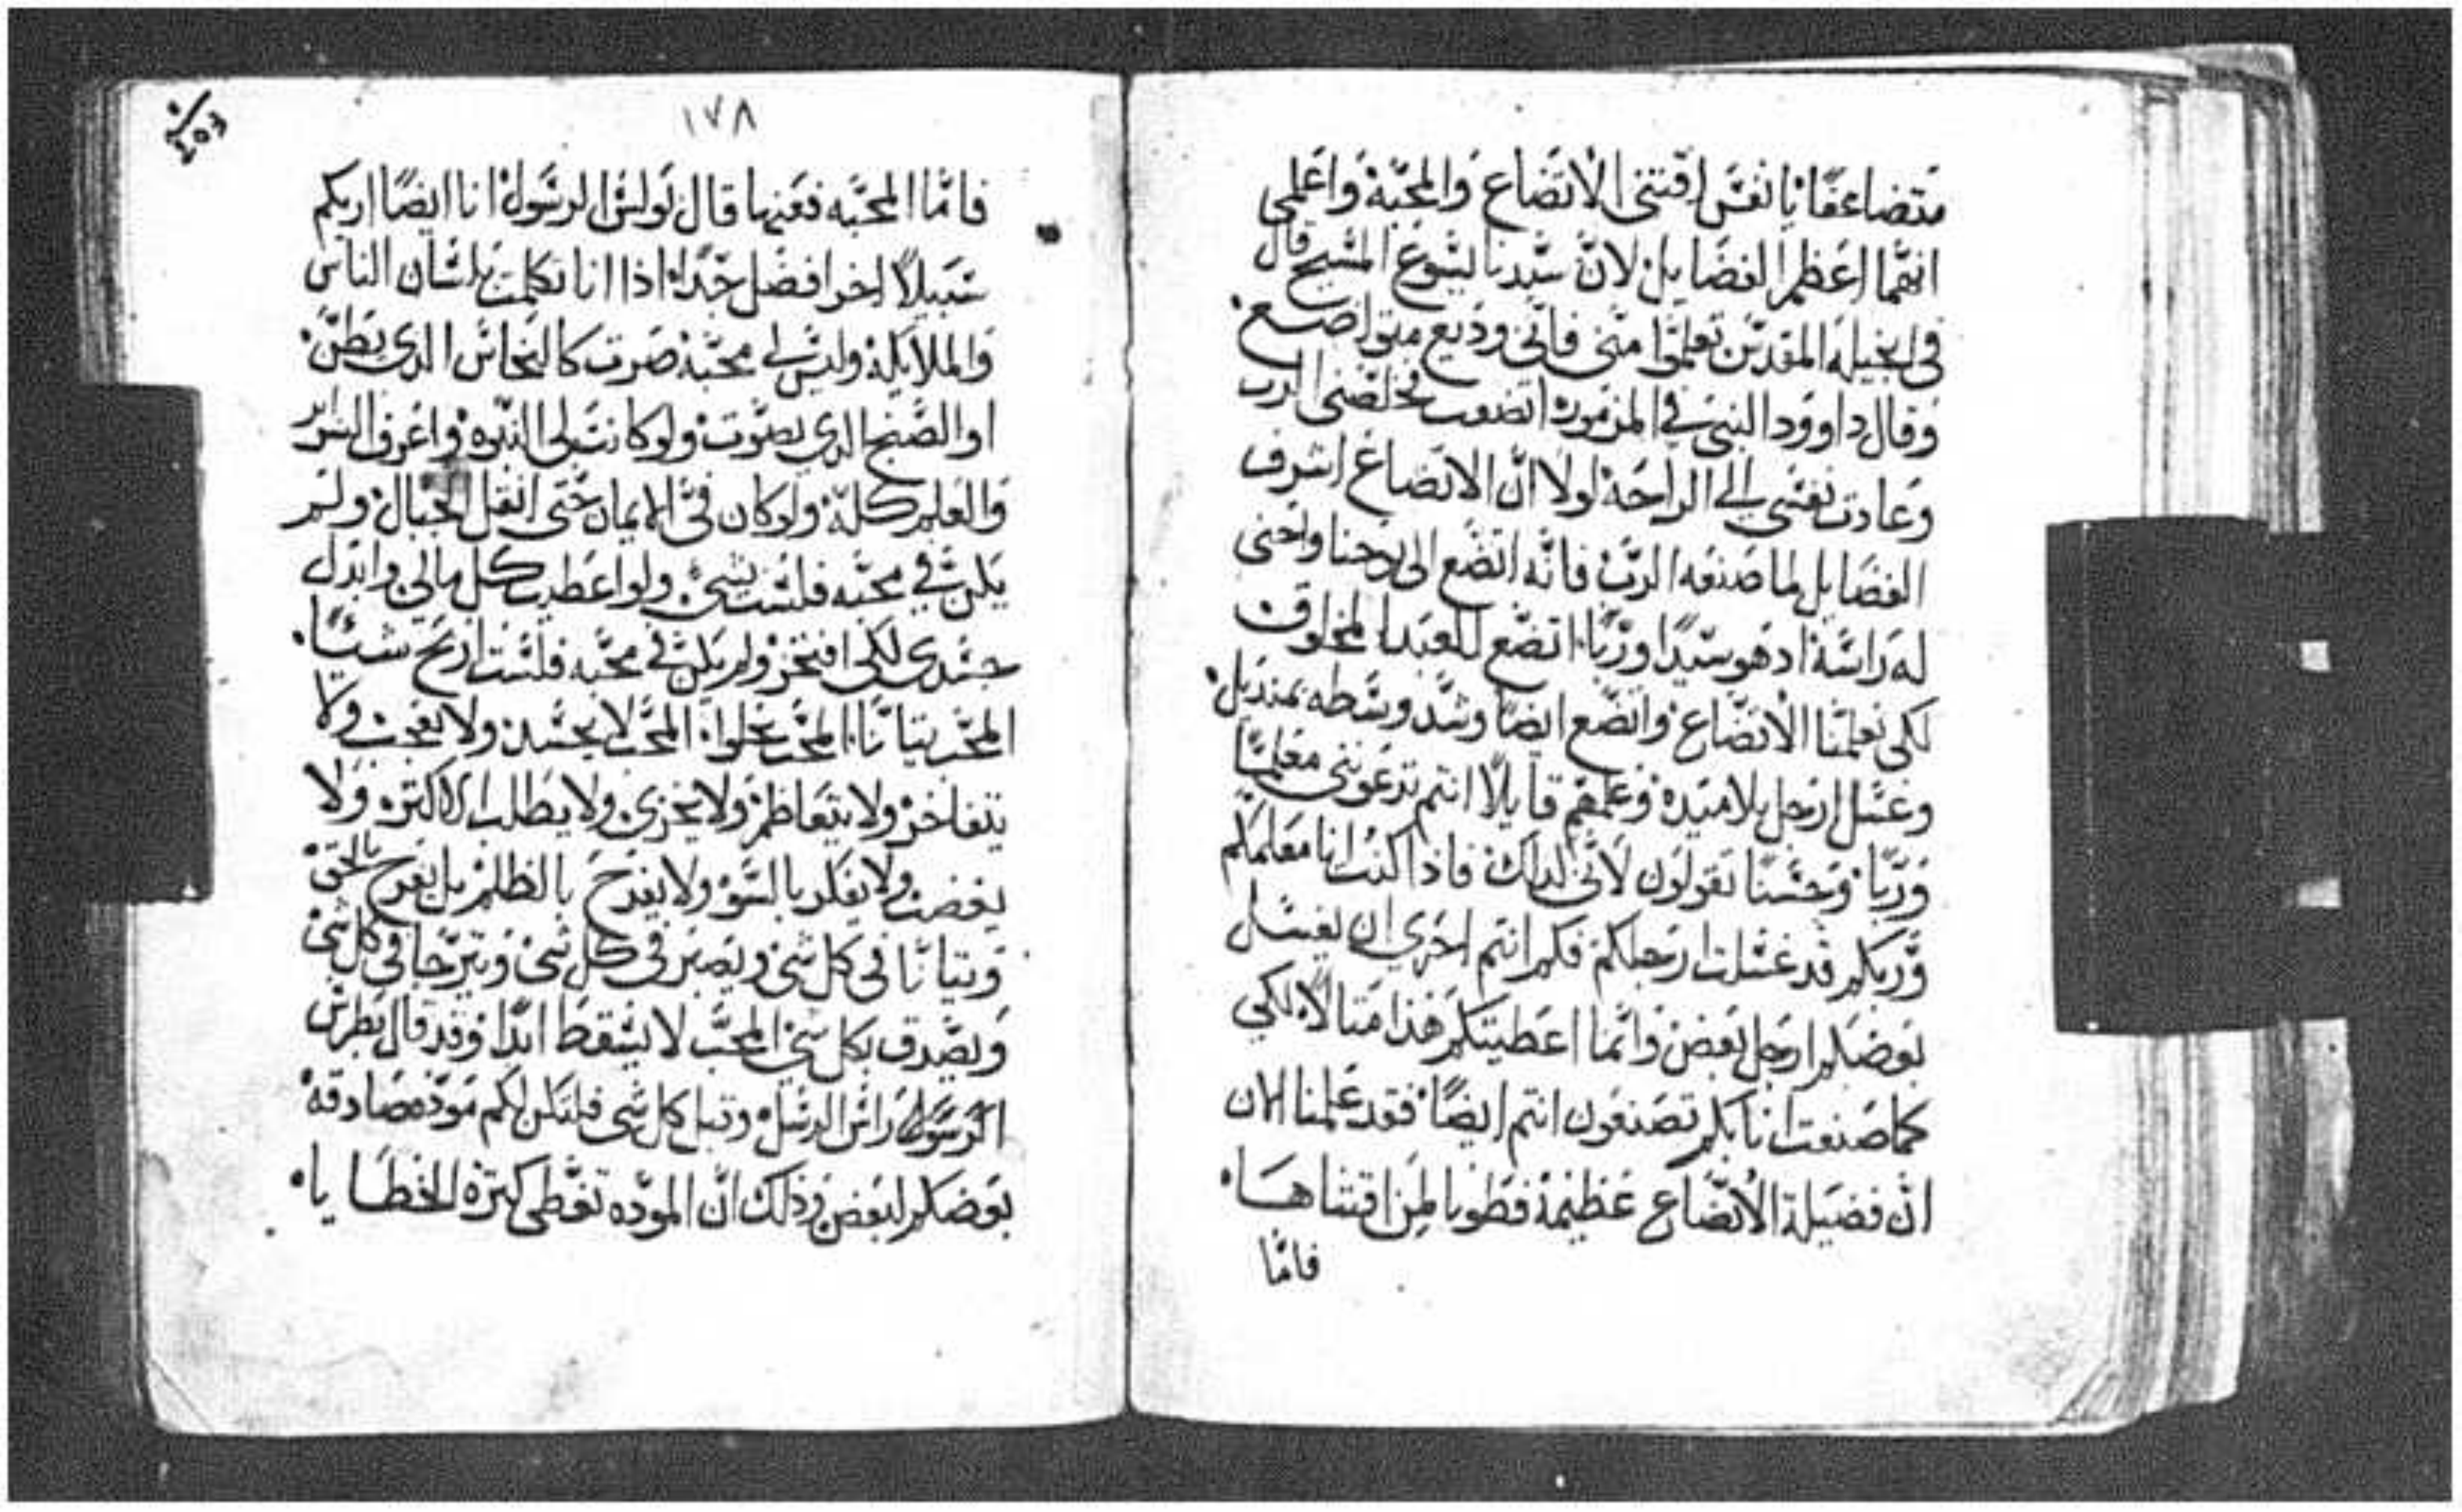 متضاعفًا يا نفس اقتني الاتضاع والمحبة واعلمي
انهما اعظم الفضايل لان سيدنا يسوع المسيح قال
في انجيله المقدس تعلموا مني فاني وديع متواضع
وقال داوود النبي في المزمور اتضعت فخلصني الرب
وعادت نفسي الي الراحة لولا ان الاتضاع اشرف
الفضايل لما صنعه الرب فانه اتضع الى يوحنا واحنى
له راسه اد هو سيدًا وربًا اتضع للعبد المخلوق
لكي يعلمنا الاتضاع واتضع ايضًا وشد وسطه بمنديل
وغسل ارجل تلاميده وعلمهم قايلًا انتم تدعونني معلمًا
وربًا وحسنًا تقولون لاني كدلك فاذا كنت انا معلمكم
وربكم قد غسلت ارجلكم فكم انتم احري ان يغسل
بعضكم ارجل بعض وانما اعطيتكم هذا متالًا لكي
كما صنعت انا بكم تصنعون انتم ايضًا فقد علمنا الان
ان فضيلة الاتضاع عظيمة فطوبا لمن اقتناها
فامّا
١٧٨
فامّا المحبه فعنها قال بولس الرسول انا ايضًا اريكم
سبيلًا اخر افضل جدًا اذا انا تكلمت بلسان الناس
والملايكة وليس لي محبة صرت كالنحاس الدي يطن
او الصنج الدي يصوت ولو كانت لي النبوه واعرف السراير
والعلم كله ولو كان فيّ الايمان حتى انقل الجبال ولم
يكن فيّ محبه فلست بشئ ولو اعطيت كل مالي وابدل
جسدي لكي افتخر ولم يكن فيّ محبه فلست اربح شيئًا
المحب يتانّا المحب يحلوا المحب لا يحسد ولا يعجب ولا
يتفاخر ولا يتعاظم ولا يخزي ولا يطلب الاكتر ولا
يغضب ولا يفكر بالسو ولا يفرح بالظلم بل يفرح بالحق
ويتانّا في كل شي ويصبر في كل شي ويترجا في كل شي
ويصدق بكل شي المحب لا يسقط ابدًا وقد قال بطرس
الرسول راس الرسل وقبل كل شي فلتكن لكم موده صادقة
بعضكم لبعض وذلك ان الموده تغطي كترة الخطايا